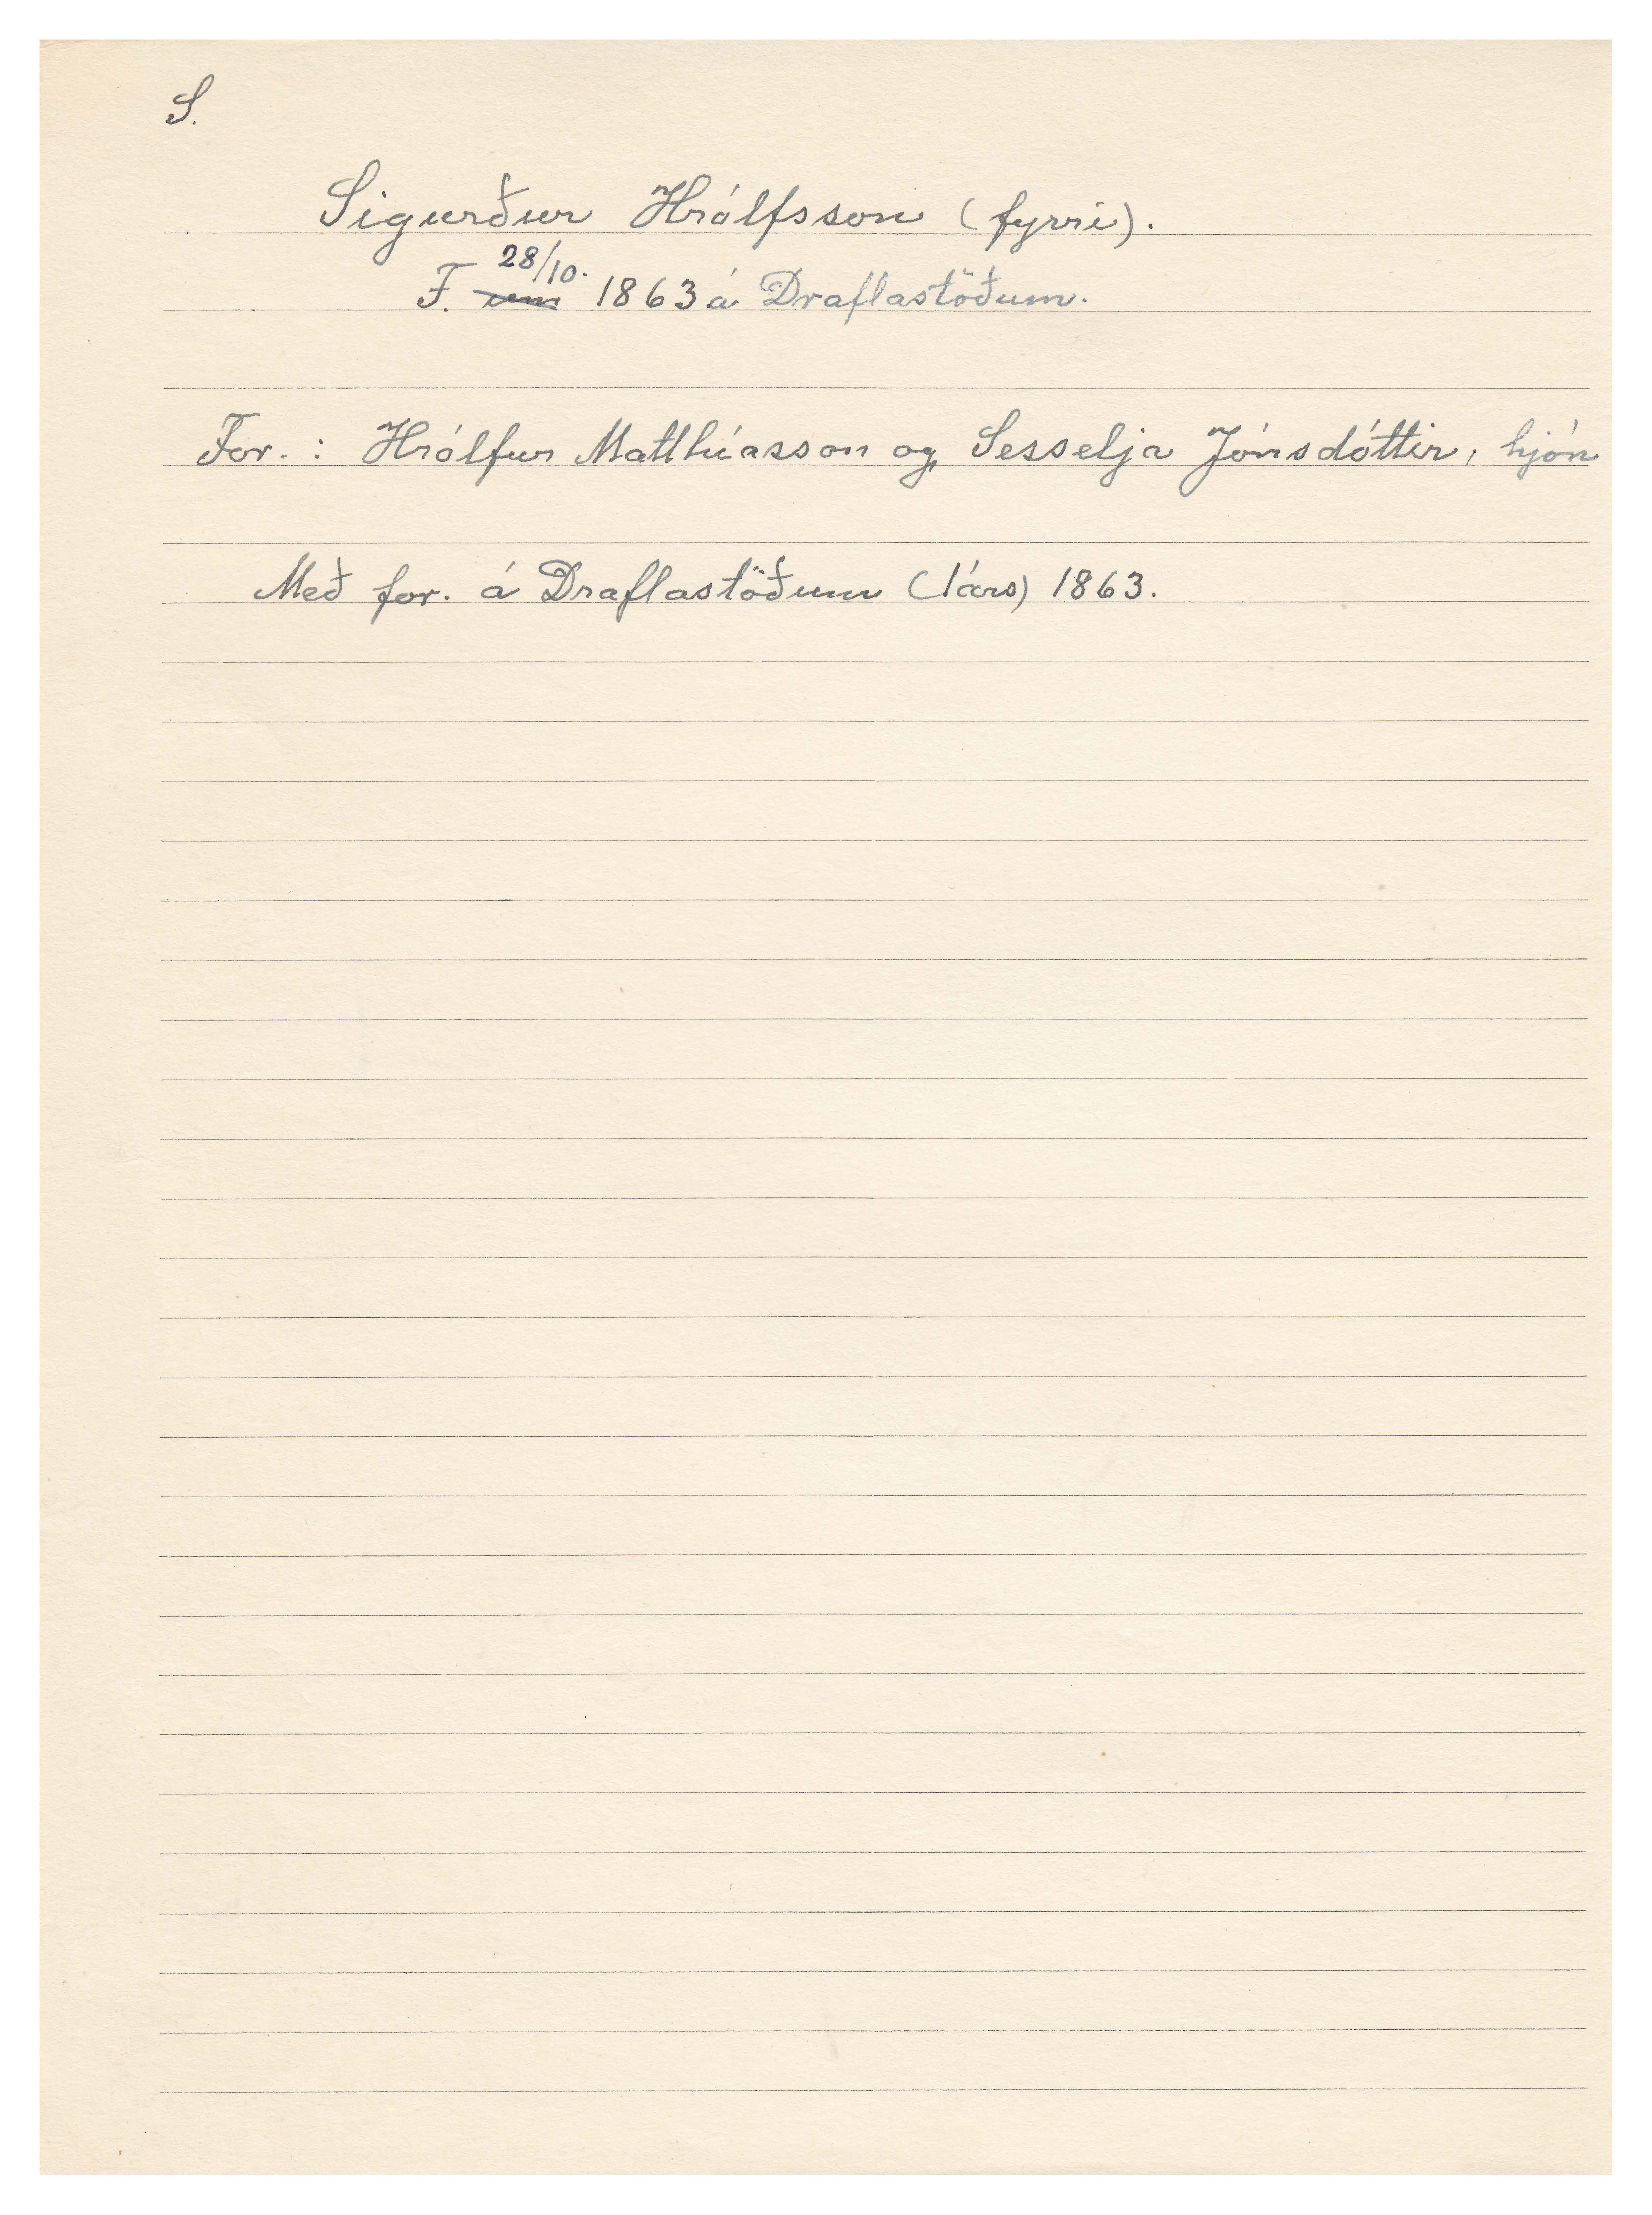 S.
Sigurður Hrólfsson (fyrri).
28/10.
F. um 1863 á Draflastöðum.
For. : Hrólfur Matthíasson og Sesselja Jónsdóttir, hjón
Með for. á Draflastöðum (1árs) 1863.